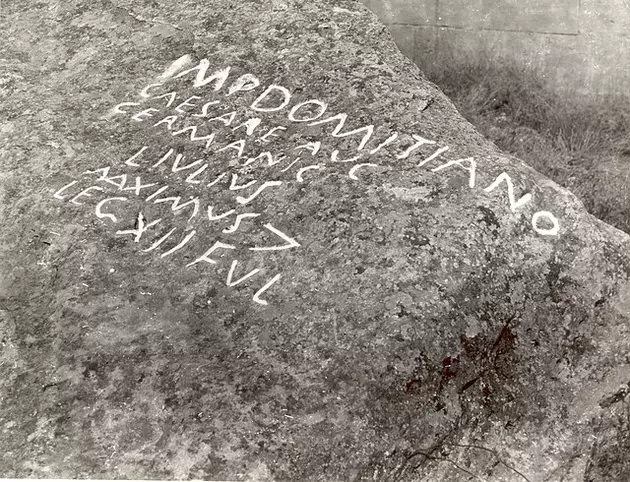 IMP DOMITIANO
CAESARE AVG
GERMANIC
LIVLIVS
MAXIMVS >
LEG XII FVL